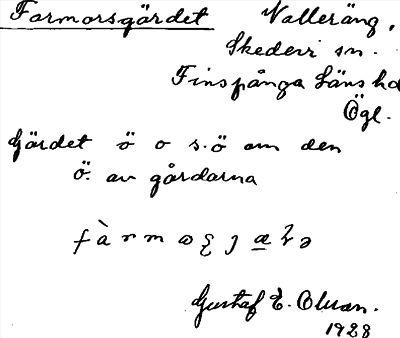 Farmorsgärdet Valleräng,
Skedevi sn.
Finspånga läns hd
Ögl.
Gärdet ö o s.ö om den
ö. av gårdarna
Gustaf E. Olsson.
1928